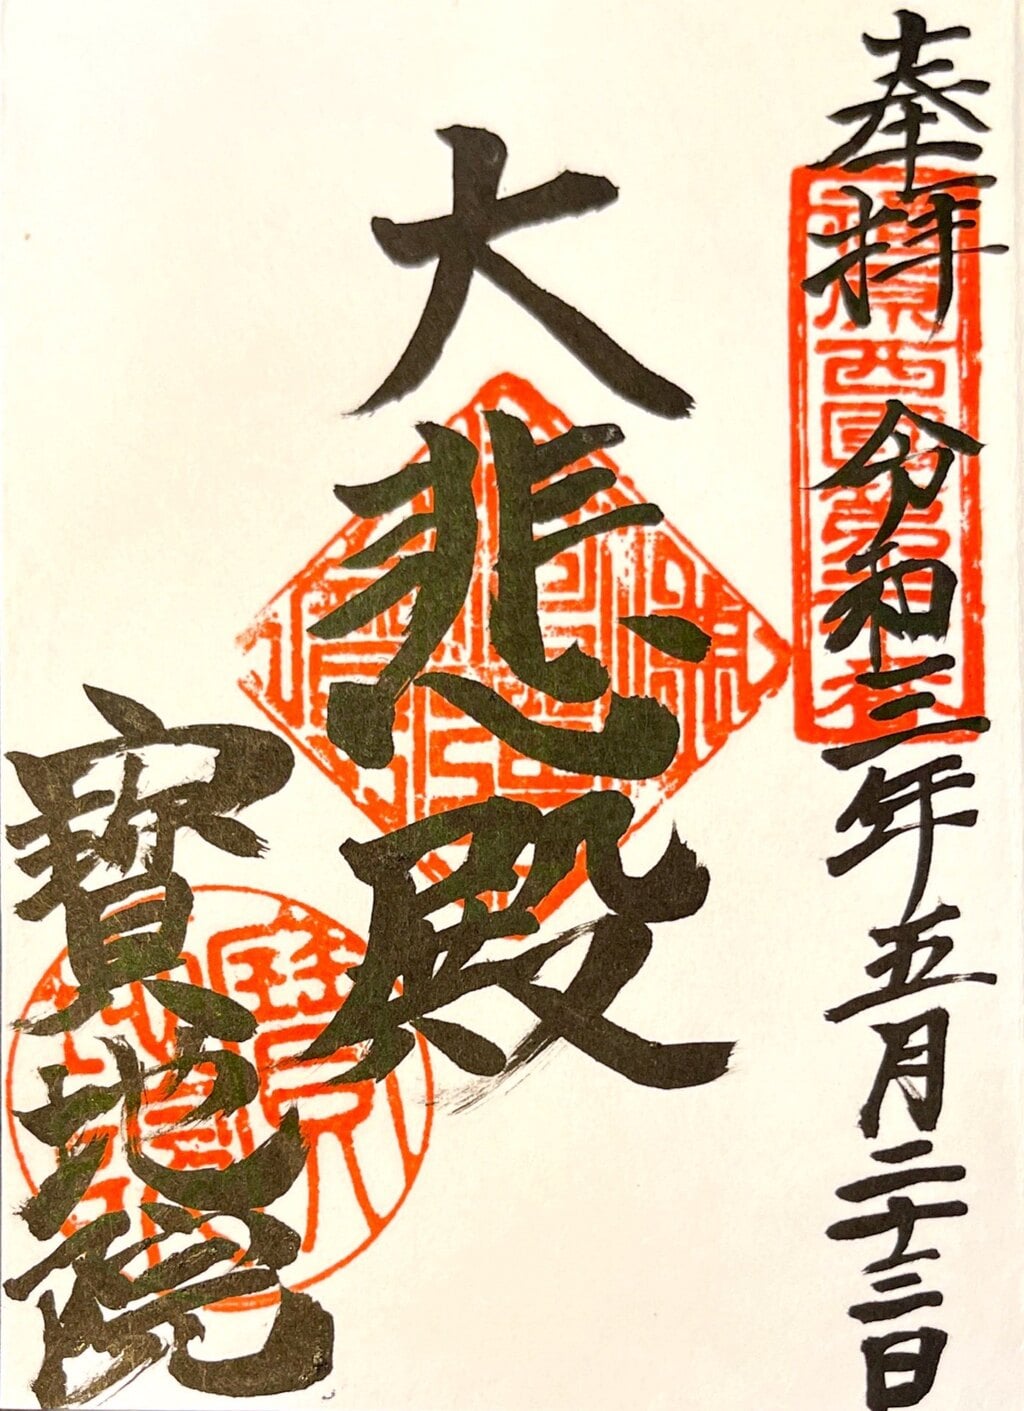 奉拝 令和三年五月二十二日
大悲殿
寳地院